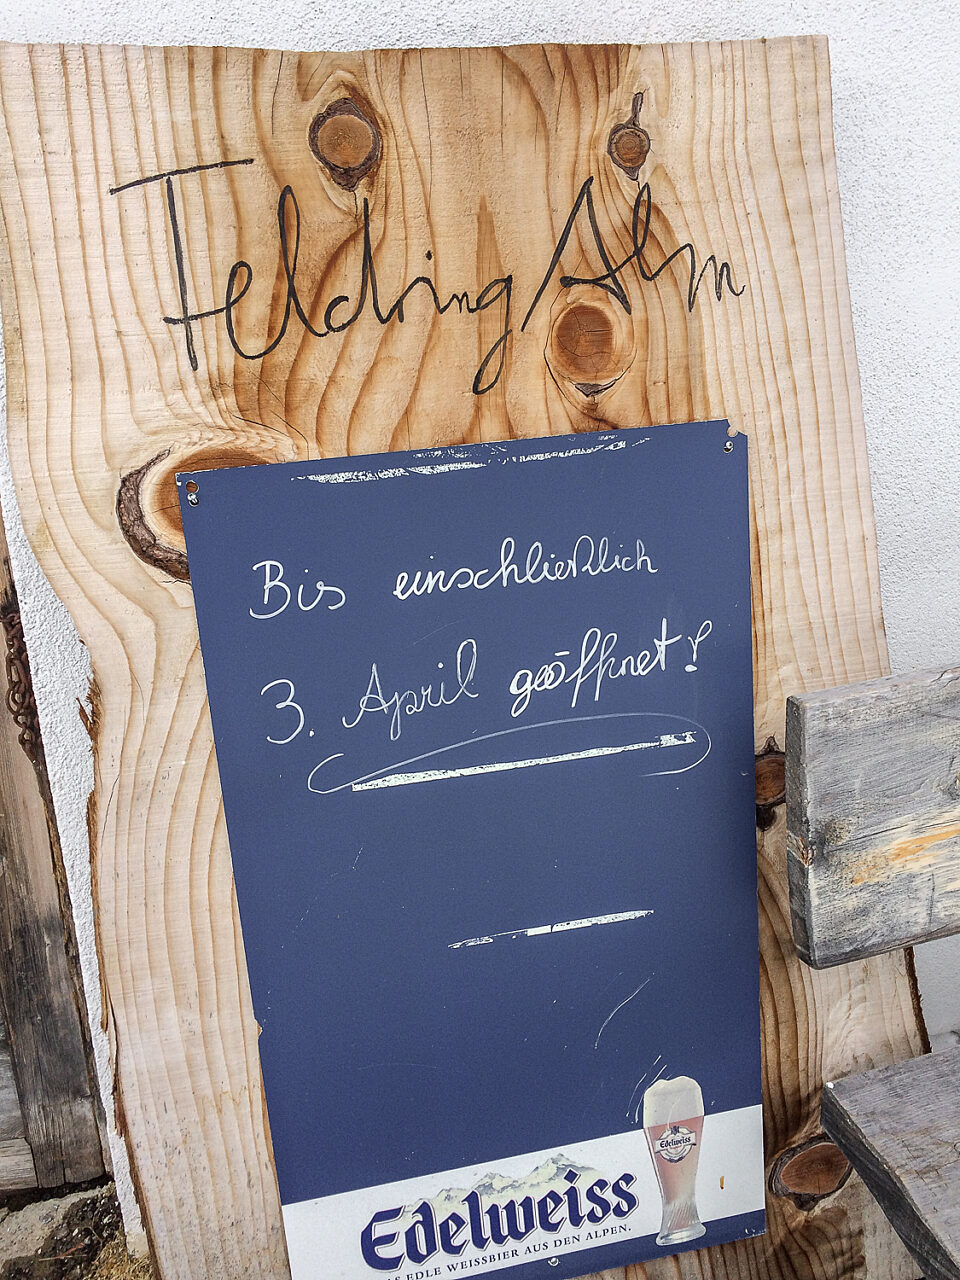 Felding Alm
Bis einschließlich
3. April geöffnet!
Edelweiss
Edelweiss
DAS EDLE WEISSBIER AUS DEN ALPEN.